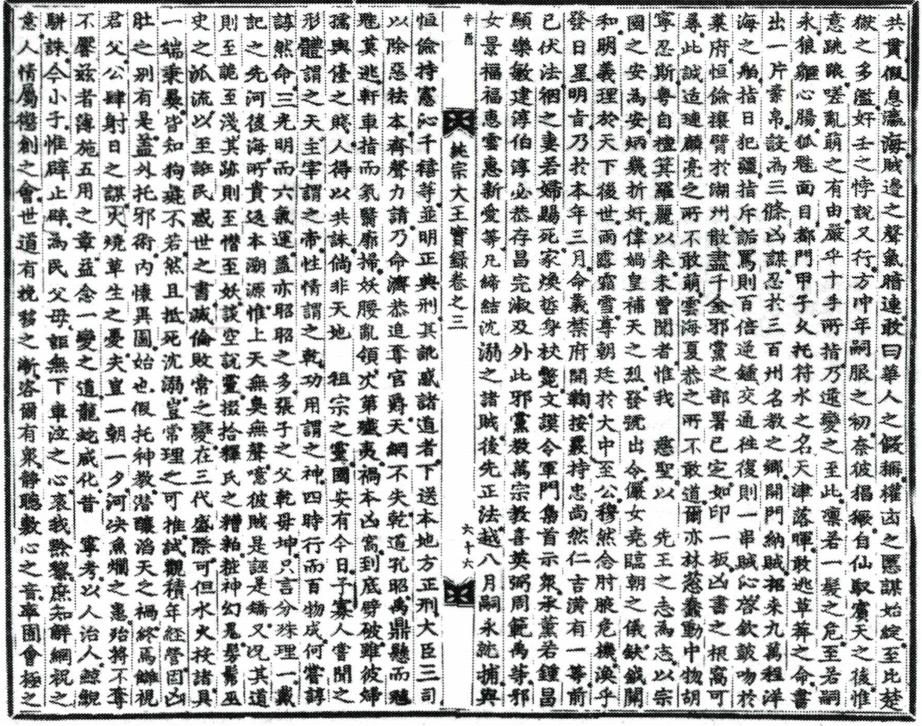 共貫假息瀛海賊邊之聲氣暗連敢曰華人之假稱權凶之慝謀始綻至比楚
獄之多濫奸壬之悖說又行方冲年嗣服之初奈彼猖獗自仙馭賓天之後惟
意跳踉嗟亂萌之有由嚴乎十手所指乃適變之至此凜若一髮之危至若嗣
永狼軀心腸狐魅面目都門甲子久托符水之名天津落暉敢逃草莽之命書
出一片素帛設爲三條凶謀忍於三百州名教之鄉開門納賊招來九萬程洋
海之舶指日犯疆指斥詬罵則百倍逆鍾交通徃復則一串賊沁啓欽鼓吻於
藁府恒儉攘臂於湖州散盡千金邪黨之部署已定如印一板凶書之根窩可
尋此誠适璉麟亮之所不敢萌雲海夏恭之所不敢道爾亦林葱蠢動中物胡
寧忍斯粤自檀箕羅麗以來未曾聞者惟我　慈聖以　先王之志爲志以宗
國之安爲安炳幾折奸偉媧皇補天之烈發號出令儼女堯臨朝之儀鈇鉞開
和明義理於天下後世雨露霜雪尊朝廷於大中至公穆然念肘腋危機渙乎
發日星明旨乃於本年三月命義禁府開鞫按覈持忠尚然仁吉潢有一等前
已伏法裀之妻若婦賜死家煥哲身杖斃文謨令軍門梟首示衆承薰若鍾昌
顯樂敏建淳伯淳必恭存昌完淑及外此邪黨教萬宗教喜英弼周範禹等邪
女景福福惠雲惠新愛等凡締結沈溺之諸賊後先正法越八月嗣永就捕與
辛酉
純宗大王實錄卷之三
六十六
恒儉持憲沁千禧等並明正典刑其訛惑諸道者下送本地方正刑大臣三司
以除惡祛本齊聲力請乃命濟恭追奪官爵天網不失乾道孔昭禹鼎懸而魑
魅莫逃軒車指而氛翳廓掃妖腰亂領次第殲夷禍本凶窩到底劈破雖彼婦
孺輿儓之賤人得以共誅倘非天地　祖宗之靈國安有今日予寡人嘗聞之
形體謂之天主宰謂之帝性情謂之乾功用謂之神四時行而百物成何嘗諄
諄然命三光明而六氣運蓋亦昭昭之多張子之父乾母坤只言分殊理一戴
記之先河後海所貴返本溯源惟上天無臭無聲噫彼賊是誣是矯又况其道
則至詭至淺其跡則至憯至妖談空說靈掇拾釋氏之糟粕粧神幻鬼髣髴巫
史之派流以至誑民惑世之書滅倫敗常之變在三代盛際可但水火投諸具
一端秉彝皆知狗彘不若然且抵死沈溺豈常理之可推試觀積年經營固凶
肚之別有是盖外托邪術內懷異圖始也假托神教潛釀滔天之禍終焉雠視
君父公肆射日之謀火燒草生之憂夫豈一朝一夕河決魚爛之患殆將不奪
不饜玆者薄施五用之章益念一變之道龍蛇咸化昔　寧考以人治人鯨鯢
駢誅今小子惟辟止辟爲民父母詎無下車泣之心哀我黔黎庶知解網祝之
意人情屬懲創之會世道有挽移之漸咨爾有衆靜聽敷心之音率囿會極之